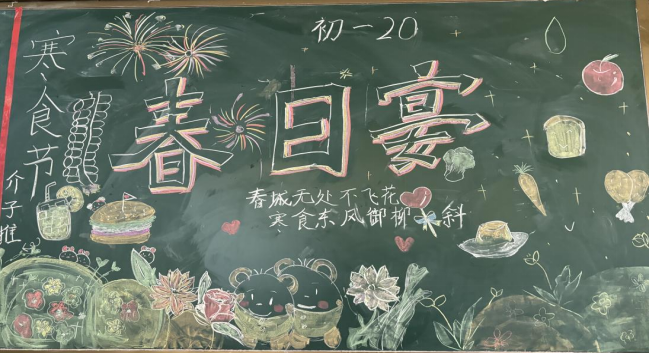 初一20
寒食节
介子推
春日宴
春城无处不飞花
寒食东风御柳斜